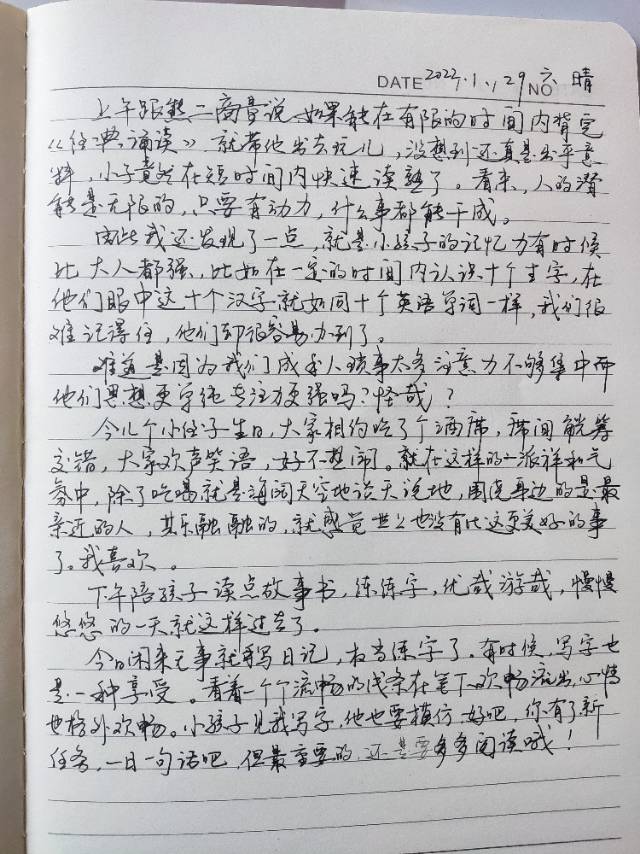 DATE 2022.1.29 NO 六 晴
上午跟熊二商量说如果能在有限的时间内背完
《经典诵读》就带他出去玩儿，没想到还真是出乎意
料，小子竟然在短时间内快速读熟了。看来，人的潜
能是无限的，只要有动力，什么事都能干成。
由此我还发现了一点，就是小孩子的记忆力有时候
比大人都强，比如在一定的时间内认识十个生字，在
他们眼中这十个汉字就如同十个英语单词一样，我们很
难记得住，他们却很容易办到了。
难道是因为我们成年人琐事太多注意力不够集中而
他们思想更单纯专注力更强吗？怪哉？
今儿个小侄子生日，大家相约吃了个酒席，席间觥筹
交错，大家欢声笑语，好不热闹。就在这样的一派祥和气
氛中，除了吃喝就是海阔天空地谈天说地，围绕身边的是最
亲近的人，其乐融融的，就感觉世上也没有比这更美好的事
了。我喜欢。
下午陪孩子读点故事书，练练字，优哉游哉，慢慢
悠悠的一天就这样过去了。
今日闲来无事就再写日记，权当练字了。有时候，写字也
是一种享受。看着一个个流畅的线条在笔下欢畅流出，心情
也格外欢畅。小孩子见我写字，他也要模仿，好吧，你有了新
任务，一日一句话吧，但最重要的，还是要多多阅读哦！